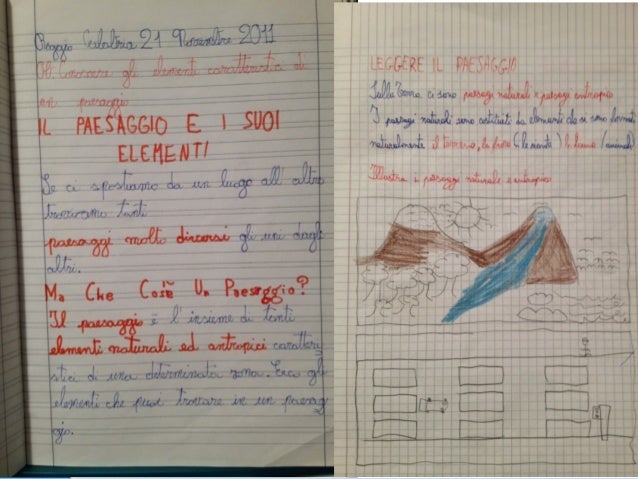 Reggio Calabria 21 Novembre 2011
Ob. Conoscere gli elementi caratteristici di
un paesaggio
IL PAESAGGIO E I SUOI
ELEMENTI
Se ci spostiamo da un luogo all'altro
troviamo tanti
paesaggi molto diversi gli uni dagli
altri.
Ma Che Cos'è Un Paesaggio?
Il paesaggio è l'insieme di tanti
elementi naturali ed antropici caratteri
stici di una determinata zona. Ecco gli
elementi che puoi trovare in un paesag
gio.
LEGGERE IL PAESAGGIO
Sulla terra ci sono paesaggi naturali e paesaggi antropici
I paesaggi naturali sono costituiti da elementi che si sono formati
naturalmente il terreno, la flora (le piante) la fauna (animali)
Illustra i paesaggi naturale e antropico